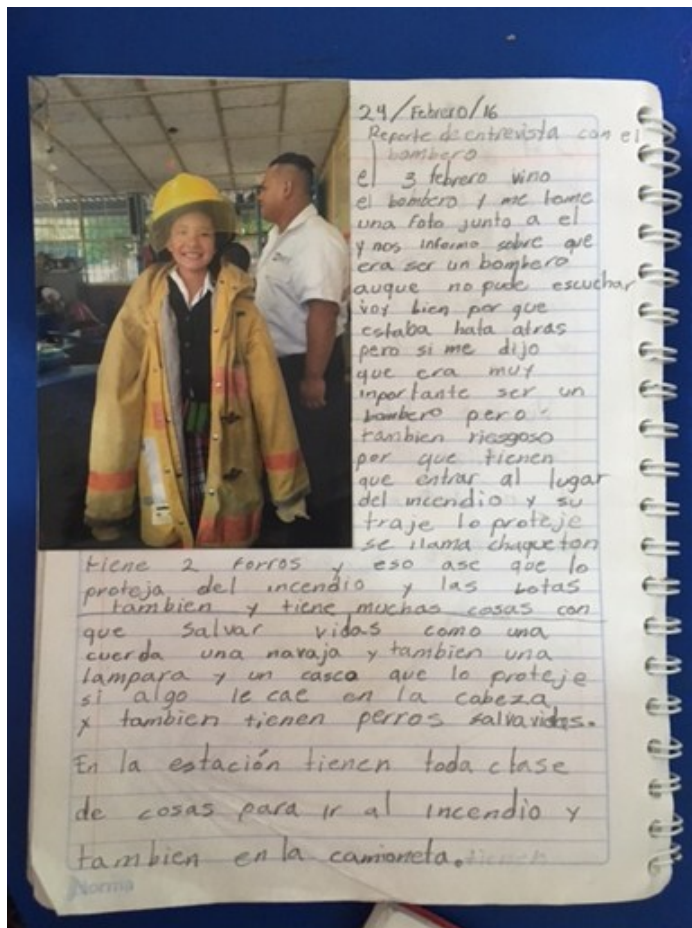 24/Febrero/16
Reporte de entrevista con el
bombero
el 3 febrero vino
el bombero y me tome
una foto junto a el
y nos informo sobre que
era ser un bombero
auque no pude escuchar
voy bien por que
estaba hata atras
pero si me dijo
que era muy
inportante ser un
bombero pero
tambien riesgoso
por que tienen
que entrar al lugar
del incendio y su
traje lo proteje
se llama chaqueton
tiene 2 forros y eso ase que lo
proteja del incendio y las botas
tambien y tiene muchas cosas con
que salvar vidas como una
cuerda una navaja y tambien una
lampara y un casco que lo proteje
si algo le cae en la cabeza
y tambien tienen perros salvavidas.
En la estación tienen toda clase
de cosas para ir al incendio y
tambien en la camioneta. tienen
Norma